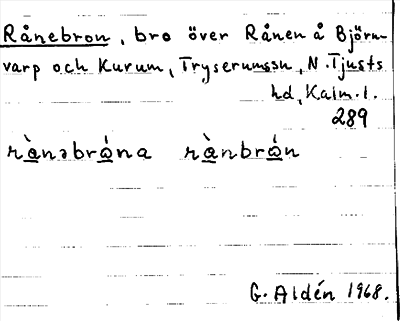 Rånebron, bro över Rånen å Björn-
varp och Kurum, Tryserumssn, N. Tjusts
hd, Kalm. l.
289
rànəbrǻna rànbrǻn
G. Aldén 1968.